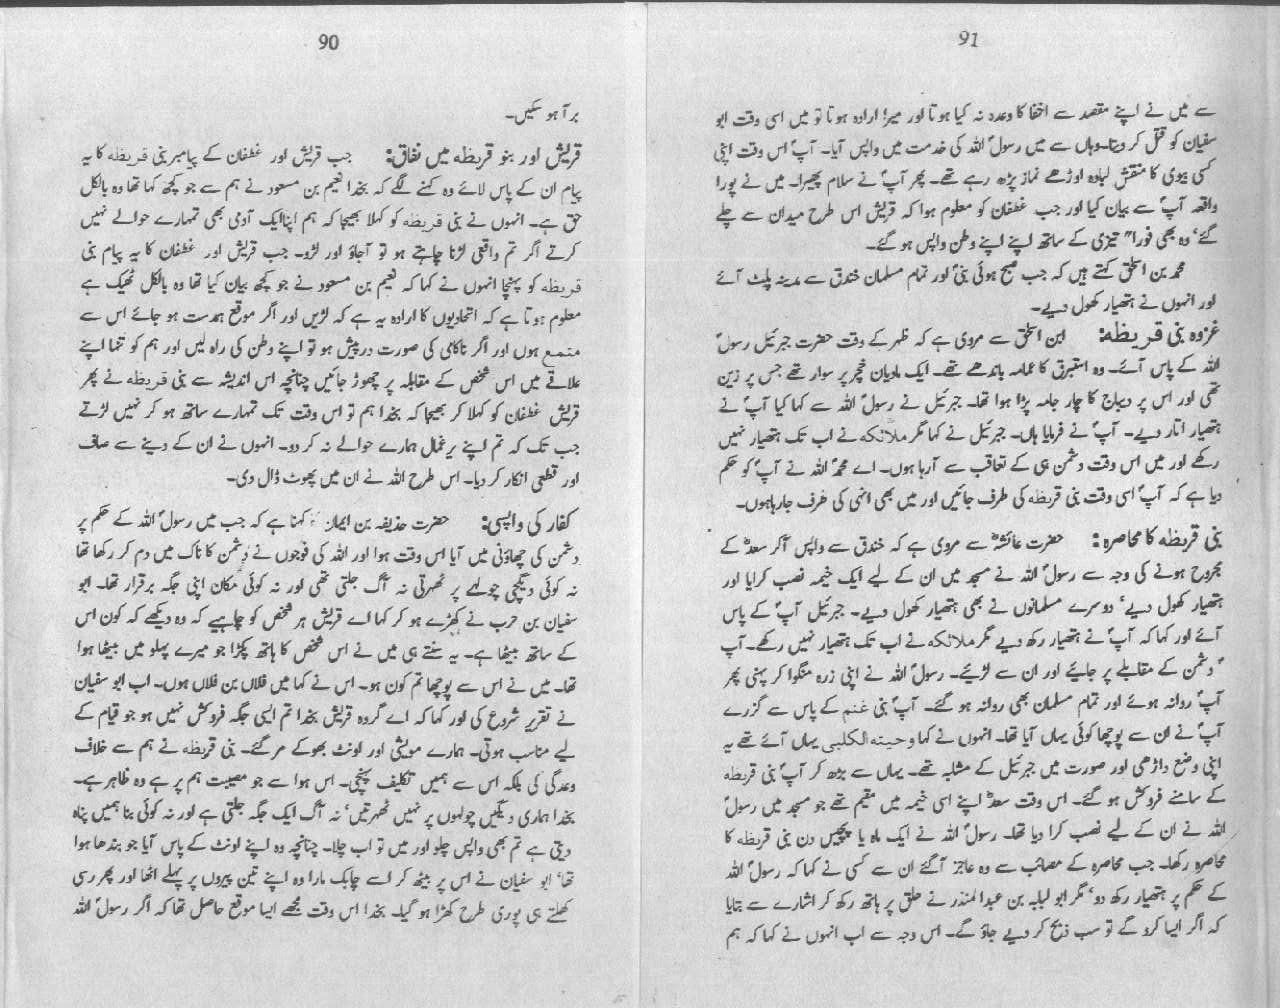 90
برآ ہو سکیں۔
قریش اور بنو قریظہ میں نفاق: جب قریش اور غطفان کے پیامبر بنی قریظہ کا یہ
پیام ان کے پاس لائے وہ کہنے لگے کہ بخدا نعیم بن مسعود نے ہم سے جو کچھ کہا تھا وہ بالکل
حق ہے۔ انہوں نے بنی قریظہ کو کہلا بھیجا کہ ہم اپنا ایک آدمی بھی تمہارے حوالے نہیں
کرتے اگر تم واقعی لڑنا چاہتے ہو تو آجاؤ اور لڑو۔ جب قریش اور غطفان کا یہ پیام بنی
قریظہ کو پہنچا انہوں نے کہا کہ نعیم بن مسعود نے جو کچھ بیان کیا تھا وہ بالکل ٹھیک ہے
معلوم ہوتا ہے کہ اتحادیوں کا ارادہ یہ ہے کہ لڑیں اور اگر موقع ہمدست ہو جائے اس سے
متمع ہوں اور اگر ناکامی کی صورت درپیش ہو تو اپنے وطن کی راہ لیں اور ہم کو تنہا اپنے
علاقے میں اس شخص کے مقابلہ پر چھوڑ جائیں چنانچہ اس اندیشہ سے بنی قریظہ نے پھر
قریش غطفان کو کہلا کر بھیجا کہ بخدا ہم تو اس وقت تک تمہارے ساتھ ہو کر نہیں لڑتے
جب تک کہ تم اپنے یرغمال ہمارے حوالے نہ کر دو۔ انہوں نے ان کے دینے سے صاف
اور قطعی انکار کر دیا۔ اس طرح اللہ نے ان میں پھوٹ ڈال دی۔
کفار کی واپسی: حضرت حذیفہ بن الیمان کہنا ہے کہ جب میں رسولؐ اللہ کے حکم پر
دشمن کی چھاؤنی میں آیا اس وقت ہوا اور اللہ کی فوجوں نے دشمن کا ناک میں دم کر رکھا تھا
نہ کوئی دیگچی چولہے پر ٹھہرتی نہ آگ جلتی تھی اور نہ کوئی مکان اپنی جگہ برقرار تھا۔ ابو
سفیان بن حرب نے کھڑے ہو کر کہا اے قریش ہر شخص کو چاہیے کہ وہ دیکھے کہ کون اس
کے ساتھ بیٹھا ہے۔ یہ سنتے ہی میں نے اس شخص کا ہاتھ پکڑا جو میرے پہلو میں بیٹھا ہوا
تھا۔ میں نے اس سے پوچھا تم کون ہو۔ اس نے کہا میں فلاں بن فلاں ہوں۔ اب ابو سفیان
نے تقریر شروع کی اور کہا کہ اے گروہ قریش بخدا تم ایسی جگہ فروکش نہیں ہو جو قیام کے
لیے مناسب ہوتی۔ ہمارے مویشی اور اونٹ بھوکے مر گئے۔ بنی قریظہ نے ہم سے خلاف
وعدگی کی بلکہ اس سے ہمیں تکلیف پہنچی۔ اس ہوا سے جو مصیبت ہم پر ہے وہ ظاہر ہے۔
بخدا ہماری دیگیں چولہوں پر نہیں ٹھہرتیں‘ نہ آگ ایک جگہ جلتی ہے اور نہ کوئی بنا ہمیں پناہ
دیتی ہے تم بھی واپس چلو اور میں تو اب چلا۔ چنانچہ وہ اپنے اونٹ کے پاس آیا جو بندھا ہوا
تھا‘ ابو سفیان نے اس پر بیٹھ کر اسے چابک مارا وہ اپنے تین پیروں پر پہلے اٹھا اور پھر رسی
کھلتے ہی پوری طرح کھڑا ہو گیا۔ بخدا اس وقت مجھے ایسا موقع حاصل تھا کہ اگر رسولؐ اللہ
91
سے میں نے اپنے مقصد سے اخفا کا وعدہ نہ کیا ہوتا اور میرا ارادہ ہوتا تو میں اسی وقت ابو
سفیان کو قتل کر دیتا۔ وہاں سے میں رسولؐ اللہ کی خدمت میں واپس آیا۔ آپؐ اس وقت اپنی
کسی بیوی کا منقش لبادہ اوڑھے نماز پڑھ رہے تھے۔ پھر آپؐ نے سلام پھیرا۔ میں نے پورا
واقعہ آپؐ سے بیان کیا اور جب غطفان کو معلوم ہوا کہ قریش اس طرح میدان سے چلے
گئے‘ وہ بھی فورا" تیزی کے ساتھ اپنے اپنے وطن واپس ہو گئے۔
محمد بن اسحٰق کہتے ہیں کہ جب صبح ہوئی نبیؐ اور تمام مسلمان خندق سے مدینہ پلٹ آئے
اور انہوں نے ہتھیار کھول دیے۔
غزوہ بنی قریظہ: ابن اسحٰق سے مروی ہے کہ ظہر کے وقت حضرت جبرئیل رسولؐ
اللہ کے پاس آئے۔ وہ استبرق کا عمامہ باندھے تھے۔ ایک مادیان خچر پر سوار تھے جس پر زین
تھی اور اس پر دیباج کا چار جامہ پڑا ہوا تھا۔ جبرئیل نے رسولؐ اللہ سے کہا کیا آپؐ نے
ہتھیار اتار دیے۔ آپؐ نے فرمایا ہاں۔ جبرئیل نے کہا مگر ملائکہ نے اب تک ہتھیار نہیں
رکھے اور میں اس وقت دشمن ہی کے تعاقب سے آرہا ہوں۔ اے محمدؐ اللہ نے آپؐ کو حکم
دیا ہے کہ آپؐ اسی وقت بنی قریظہ کی طرف جائیں اور میں بھی انہی کی طرف جارہاہوں۔
بنی قریظہ کا محاصرہ: حضرت عائشہؓ سے مروی ہے کہ خندق سے واپس آکر سعدؓ کے
مجروح ہونے کی وجہ سے رسولؐ اللہ نے مسجد میں ان کے لیے ایک خیمہ نصب کرایا اور
ہتھیار کھول دیے‘ دوسرے مسلمانوں نے بھی ہتھیار کھول دیے۔ جبرئیل آپؐ کے پاس
آئے اور کہا کہ آپؐ نے ہتھیار رکھ دیے مگر ملائکہ نے اب تک ہتھیار نہیں رکھے۔ آپ
ؐ دشمن کے مقابلے پر جائیے اور ان سے لڑیئے۔ رسولؐ اللہ نے اپنی زرہ منگوا کر پہنی پھر
آپؐ روانہ ہوئے اور تمام مسلمان بھی روانہ ہو گئے۔ آپؐ بنی غنم کے پاس سے گزرے
آپؐ نے ان سے پوچھا کوئی یہاں آیا تھا۔ انہوں نے کہا وحیتہ الکلبی یہاں آئے تھے یہ
اپنی وضع داڑھی اور صورت میں جبرئیل کے مشابہ تھے۔ یہاں سے بڑھ کر آپؐ بنی قریظہ
کے سامنے فروکش ہو گئے۔ اس وقت سعدؓ اپنے اسی خیمہ میں مقیم تھے جو مسجد میں رسولؐ
اللہ نے ان کے لیے نصب کرا دیا تھا۔ رسولؐ اللہ نے ایک ماہ یا پچیس دن بنی قریظہ کا
محاصرہ رکھا۔ جب محاصرہ کے مصائب سے وہ عاجز آگئے ان سے کسی نے کہا کہ رسولؐ اللہ
کے حکم پر ہتھیار رکھ دو‘ مگر ابو لبابہ بن عبدالمنذر نے حلق پر ہاتھ رکھ کر اشارے سے بتایا
کہ اگر ایسا کرو گے تو سب ذبح کر دیے جاؤ گے۔ اس وجہ سے اب انہوں نے کہا کہ ہم